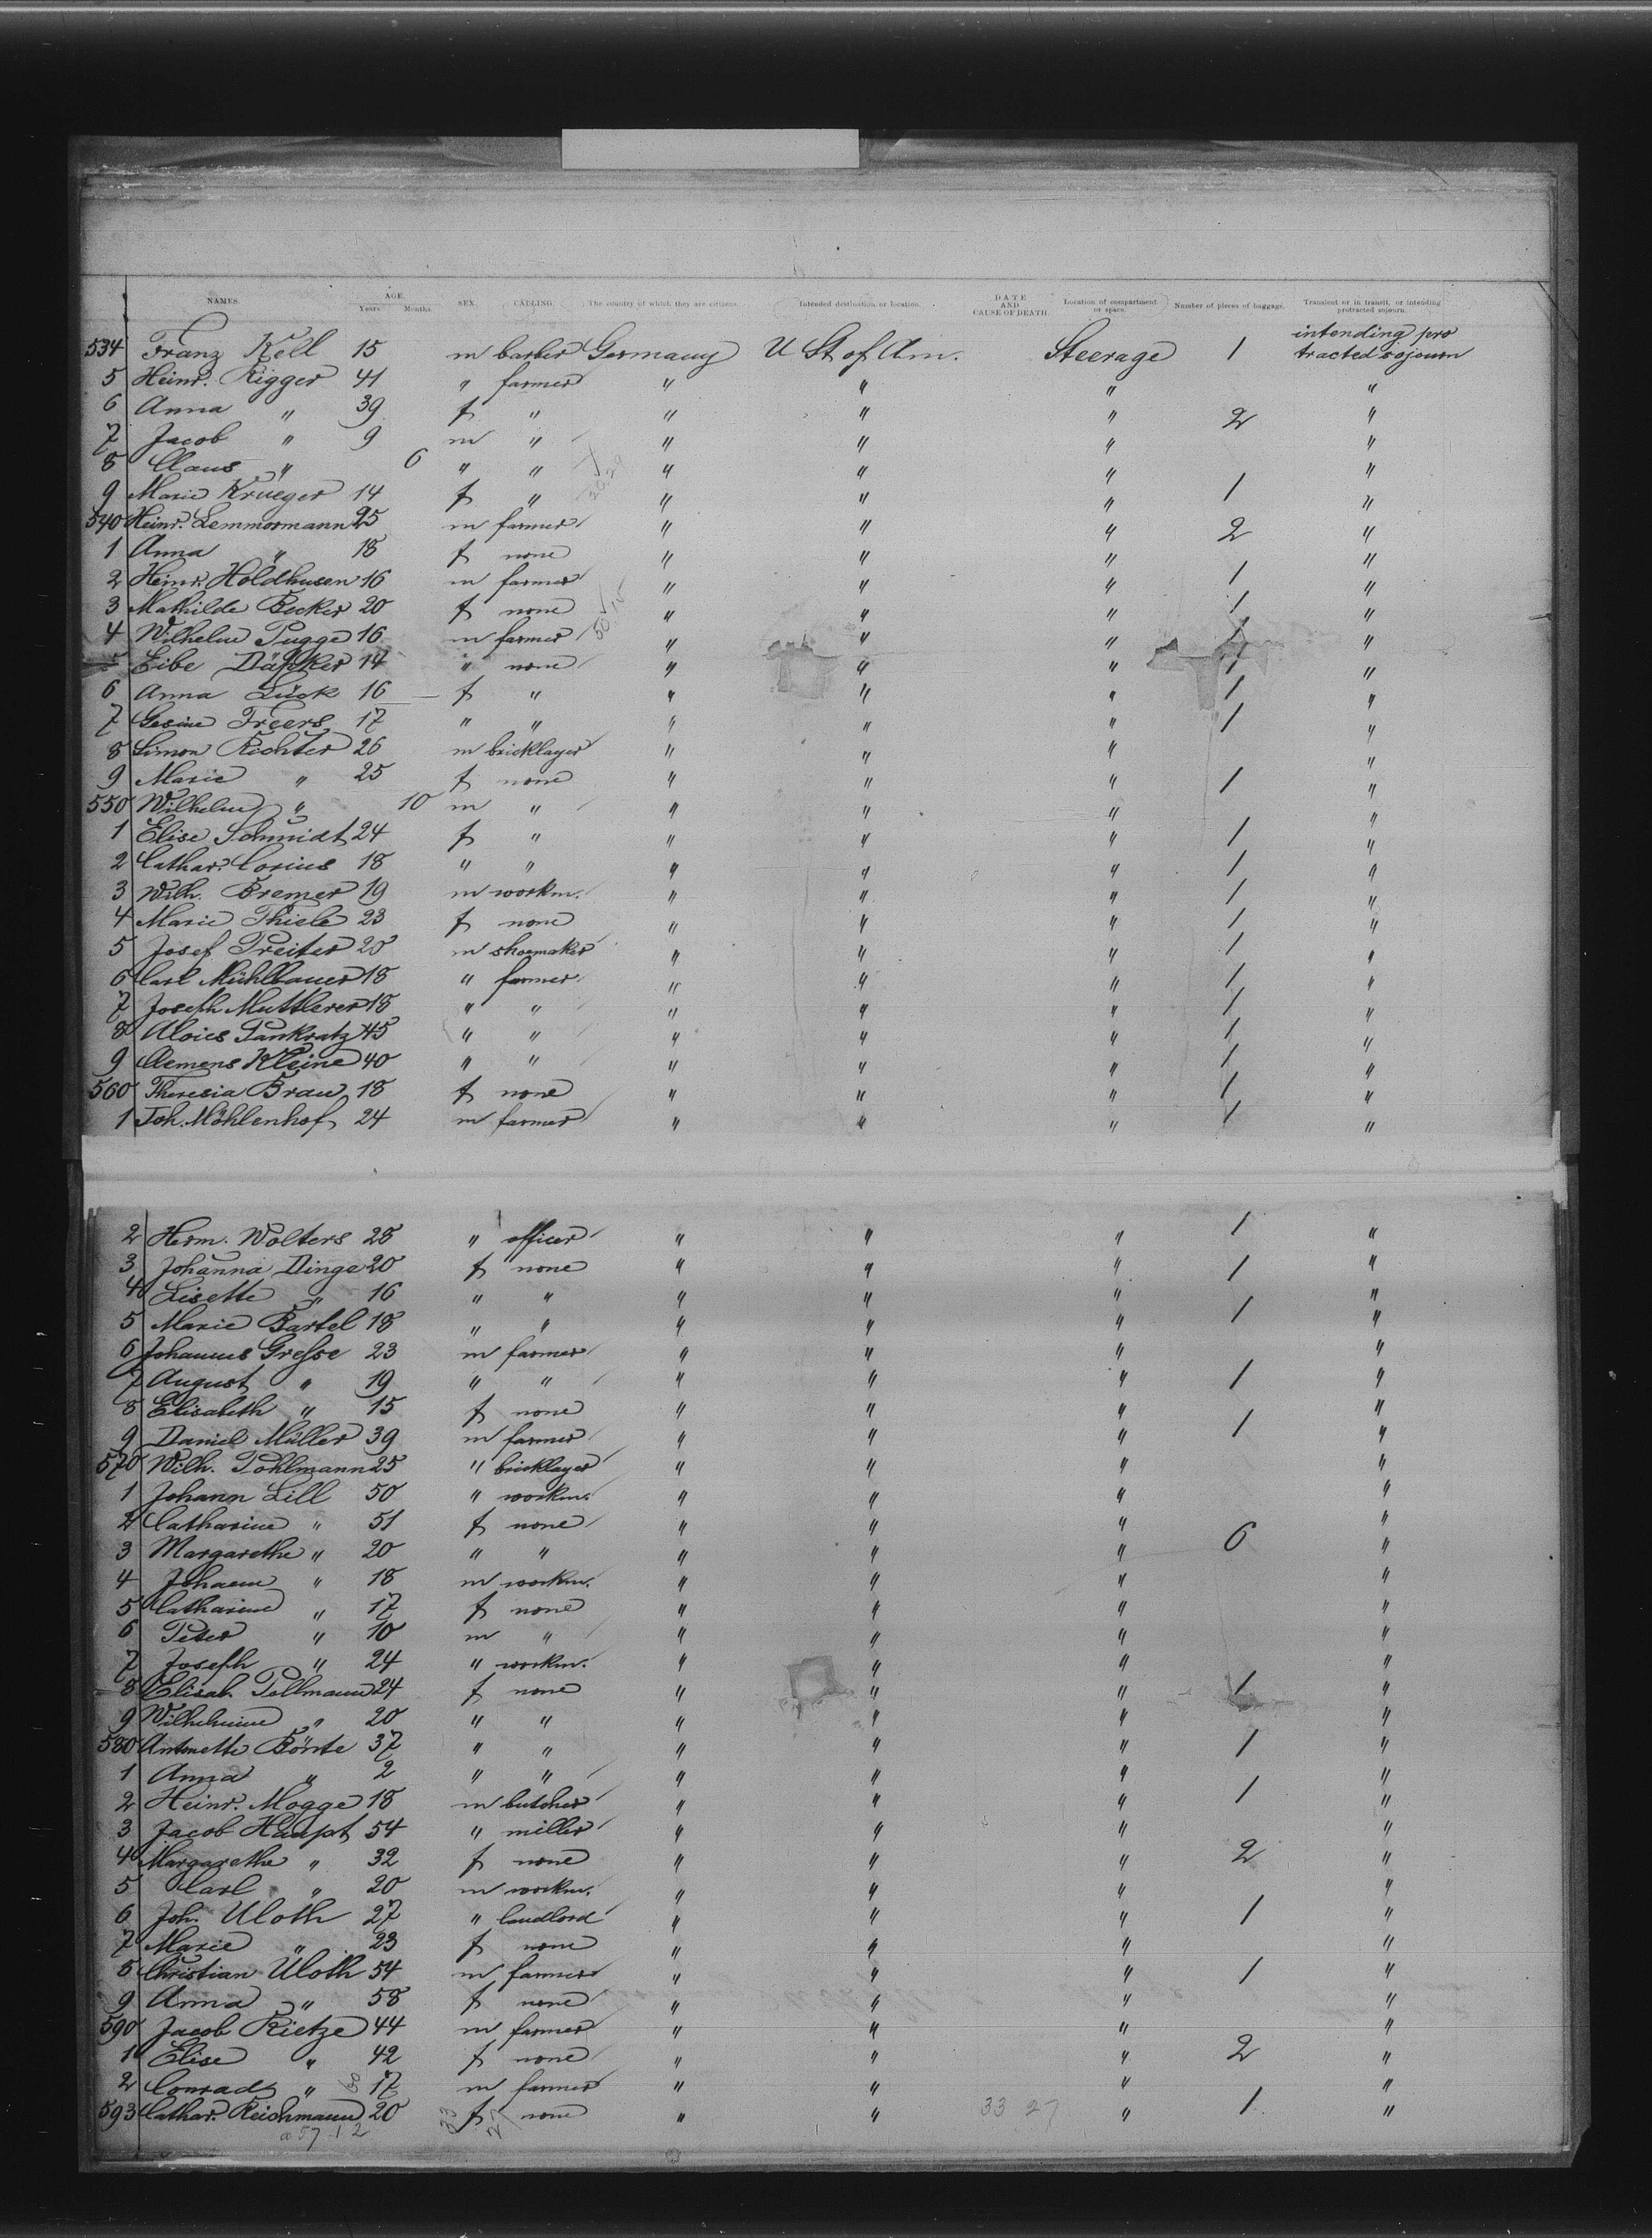 NAMES. AGE. Years. Months. SEX. CALLING. The country of which they are citizens. Intended destination or location. DATE AND CAUSE OF DEATH. Location of compartment or space. Number of pieces of baggage. Transient or in transit, or intending protracted sojourn.
534 Franz Kell 15 m barber Germany U St of Am. Steerage 1 intending protracted sojourn
5 Heinr. Rigger 41 " farmer " " " "
6 Anna " 39 f " " " " 2 "
7 Jacob " 9 m " " " " "
8 Claus " 6 " " " " " "
9 Marie Krueger 14 f " " " " 1 "
540 Heinr. Lemmormann 25 m farmer " " " 2 "
1 Anna " 18 f none " " " "
2 Heinr. Holdhusen 16 m farmer " " " 1 "
3 Mathilde Becker 20 f none " " " 1 "
4 Wilhelm Pugge 16 m farmer " " " 1 "
5 Eibe Däpker 14 " none " " " 1 "
6 Anna Lück 16 f " " " " 1 "
7 Gesine Freers 17 " " " " " 1 "
8 Simon Richter 26 m bricklayer " " " "
9 Marie " 25 f none " " " 1 "
550 Wilhelm " 10 m " " " " "
1 Elise Schmidt 24 f " " " " 1 "
2 Cathar. Corius 18 " " " " " 1 "
3 Wilh. Bremer 19 m workm. " " " 1 "
4 Marie Thiele 23 f none " " " 1 "
5 Josef Preiter 20 m shoemaker " " " 1 "
6 Carl Mühlbauer 18 " farmer " " " 1 "
7 Joseph Muttlerer 18 " " " " " 1 "
8 Aloies Pankratz 45 " " " " " 1 "
9 Clemens Kleine 40 " " " " " 1 "
560 Theresia Brau 18 f none " " " 1 "
1 Joh. Möhlenhof 24 m farmer " " " 1 "
2 Herm. Wolters 28 " officer " " " 1 "
3 Johanna Dinge 20 f none " " " 1 "
4 Lisette " 16 " " " " " "
5 Marie Bartel 18 " " " " " 1 "
6 Johannes Gresse 23 m farmer " " " "
7 August " 19 " " " " " 1 "
8 Elisabeth " 15 f none " " " "
9 Daniel Müller 39 m farmer " " " 1 "
570 Wilh. Pohlmann 25 " bricklayer " " " "
1 Johann Lill 50 " workm. " " " "
2 Catharine " 51 f none " " " "
3 Margarethe " 20 " " " " " 6 "
4 Johann " 18 m workm. " " " "
5 Catharine " 17 f none " " " "
6 Peter " 10 m " " " " "
7 Joseph " 24 " workm. " " " "
8 Elisab. Pellmann 24 f none " " " 1 "
9 Wilhelmine " 20 " " " " " "
580 Antonette Bönte 37 " " " " " 1 "
1 Anna " 2 " " " " " "
2 Heinr. Mogge 18 m butcher " " " 1 "
3 Jacob Haupt 54 " miller " " " "
4 Margarethe " 32 f none " " " 2 "
5 Carl " 20 m workm. " " " "
6 Joh. Uloth 27 " landlord " " " 1 "
7 Marie " 23 f none " " " "
8 Christian Uloth 54 m farmer " " " 1 "
9 Anna " 58 f none " " " "
590 Jacob Rietze 44 m farmer " " " "
1 Elise " 42 f none " " " 2 "
2 Conrad " 17 m farmer " " " "
593 Cathar. Reichmann 20 f none " " 33 27 " 1 "